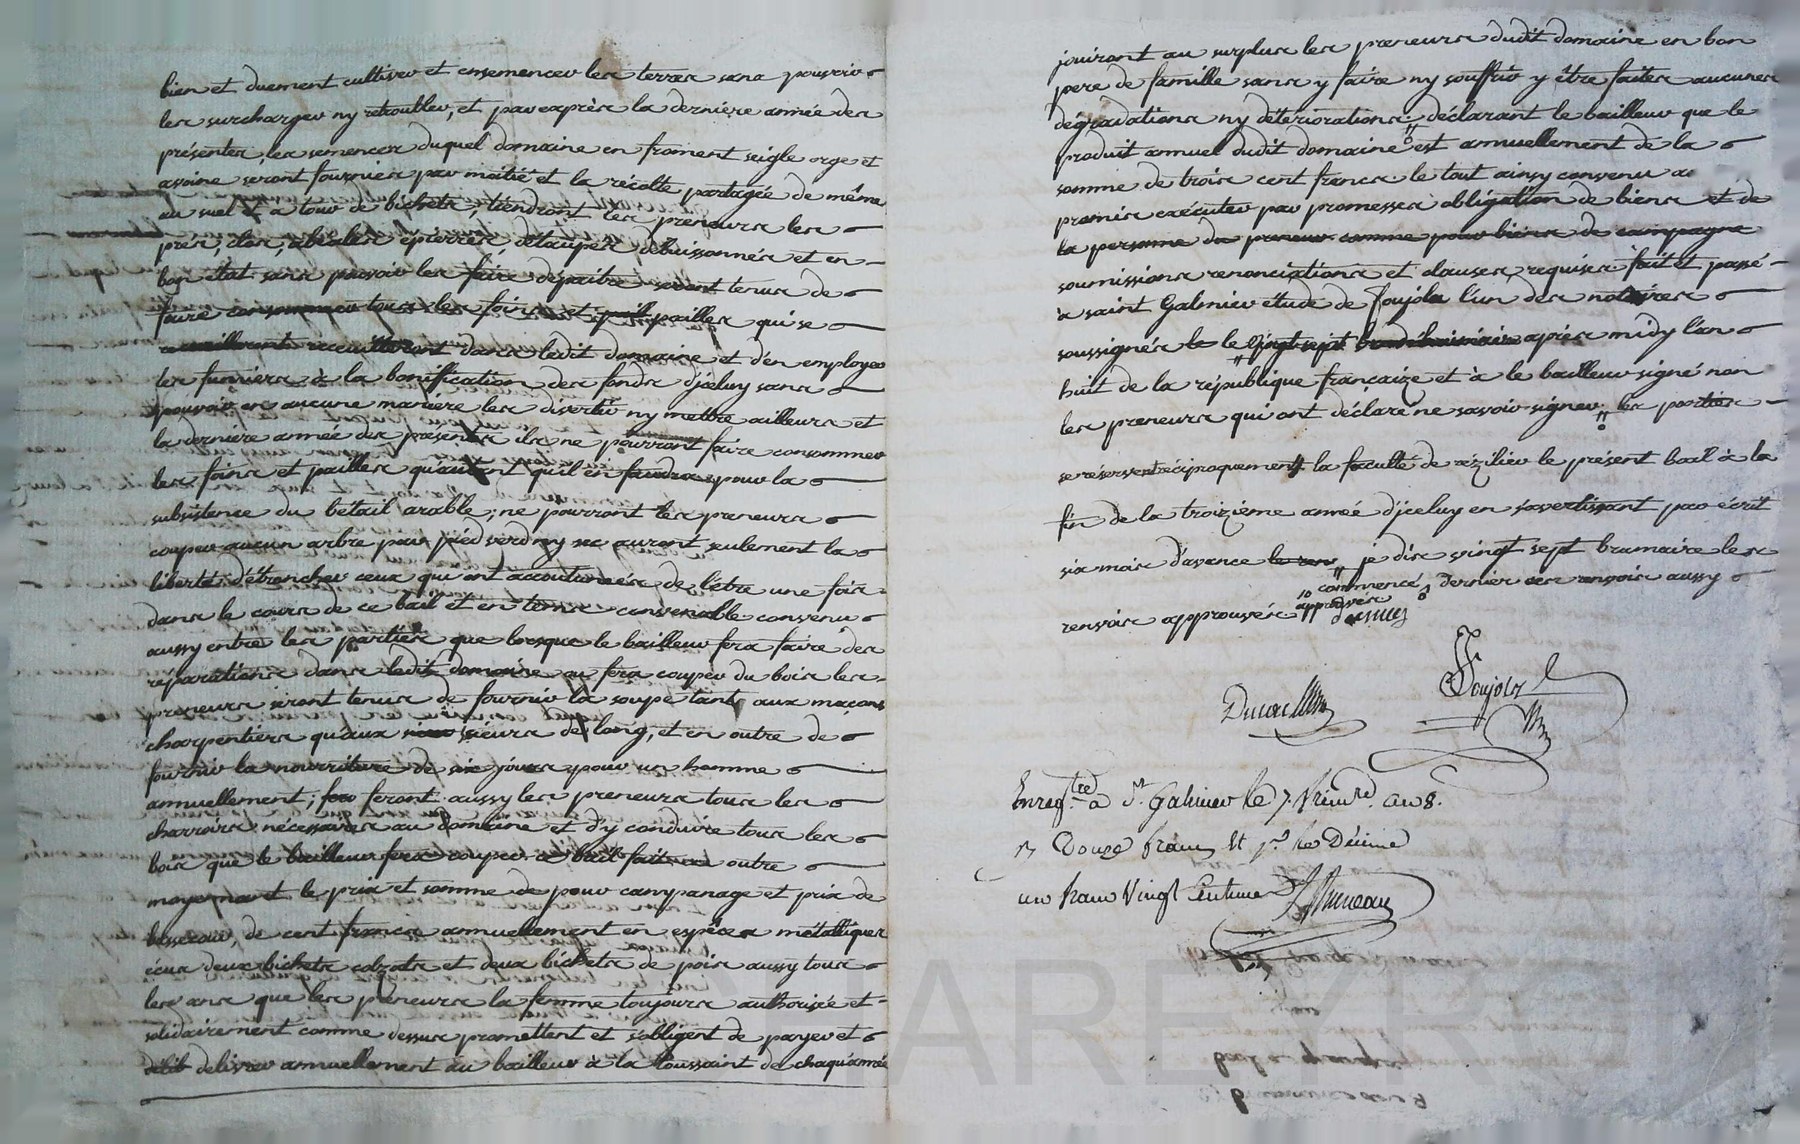 bien et duement cultiver et ensemencer les terres sans pouvoir
les surcharger ny retroubler, et par exprès la dernière année des
présentes, les semences duquel domaine en froment seigle orge et
avoine seront fournies par moitié et la récolte partagée de même
au suel et a tour de bichets, tiendront les preneurs les
prés, clos, épierrés, détaupés débuissonnés et en
bon état sans pouvoir les faire dépaitre seront tenus de
faire consommer tous les foins et pailles qui se
receuilleront dans ledit domaine et d'en employer
les fumiers à la bonification des fonds d'jceluy sans
pouvoir en aucune manière les divertir ny mettre ailleurs et
la dernière année des présentes ils ne pourront faire consommer
les foins et pailles qu'autant qu'il en faudra pour la
subsistence du bétail arable; ne pourront les preneurs
couper aucun arbre par pied verd ny sec auront seulement la
liberté d'étroncher ceux qui ont accoutumés de l'être une fois
dans le cours de ce bail et en tems convenable convenu
aussy entre les parties que lorsque le bailleur fera faire des
réparations dans ledit domaine ou fera couper du bois les
preneurs seront tenus de fournir la soupe tant aux maçons
charpentiers qu'aux sieurs de long, et en outre de
fournir la nourriture de six jours pour un homme
annuellement; feront aussy les preneurs tous les
charrois nécessaires au domaine et d'y conduire tous les
bois que le bailleur fera couper ce bail fait en outre
moyennant le prix et somme de pour campanage et prix de
basseau, de cent francs annuellement en espèces métalliques
écus deux bichets colzats et deux bichets de pois aussy tous
les ans que les preneurs la femme toujours authorisée et
solidairement comme dessus promettent et s'obligent de payer et
délivrer annuellement au bailleur à la toussaint de chaqu'année
jouiront au surplus les preneurs dudit domaine en bon
pere de famille sans y faire ny souffrir y être faites aucunes
dégradations ny détériorations; déclarant le bailleur que le
produit annuel dudit domaine est annuellement de la
somme de trois cent francs. le tout ainsy convenu
promis exécuter par promesses obligation de biens et de
la personne du preneur comme pour biens de campagne
soumissions renonciations et clauses requises fait et passé
à saint Galmier étude de Poujols l'un des notaires
soussignés le vingt sept brumaire après midy l'an
huit de la république françaize et à le bailleur signé non
les preneurs qui ont déclaré ne savoir signer les parties
se réservent réciproquement la faculté de rézilier le présent bail à la
fin de la troizième année d'jceluy en s'avertissant par écrit
six mois d'avance je dis vingt sept bramaire les
commencé dernier ces renvois aussy
approuvés
renvois approuvés dessus
Poujols
Enregtré a St. Galmier le 7. frimre. an 8.
Douze francs et pr. le Décime
un franc Vingt Centime